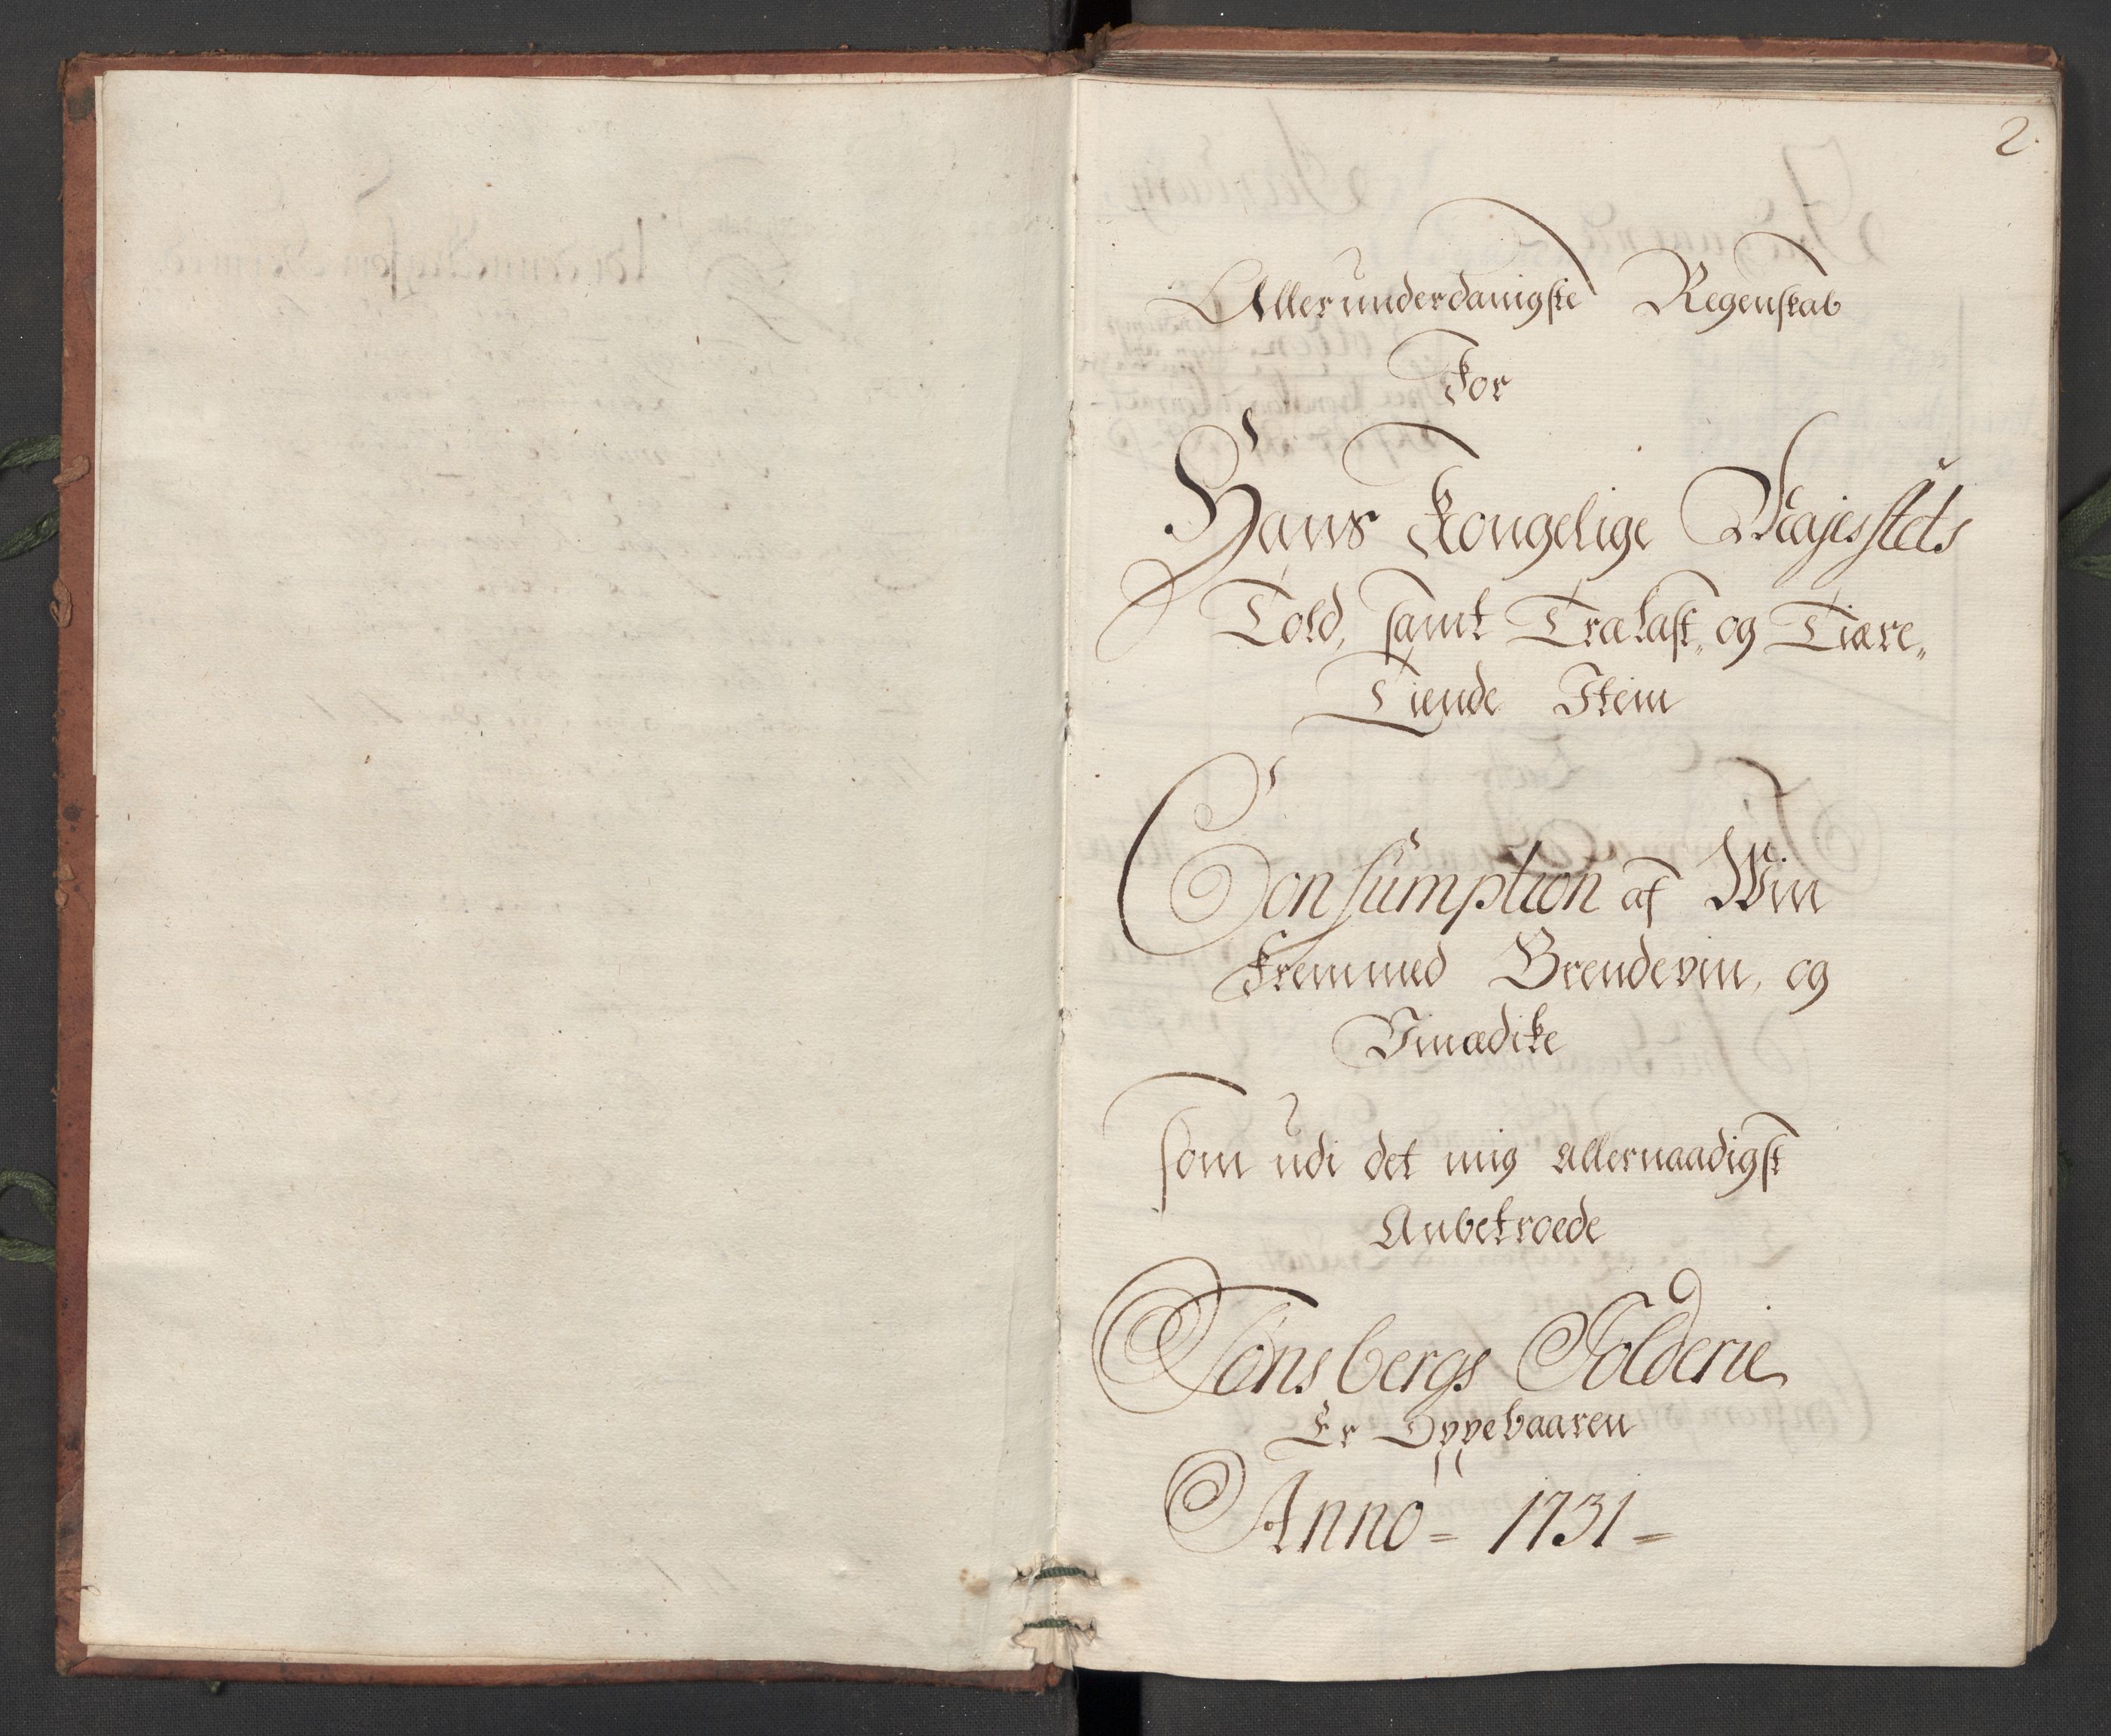 2.
Allerunderdanigste Regenskab
For
Hans Kongelige Majestets
Told, samt Trælast„ og Tiære„
Tiende Item
Consumption af Win
Fremmed Brendevin, og
Vinædike
som udi det mig allernaadigst
Anbetroede
Tønsbergs Tolderie
Er Oppebaaren
Anno = 1731 =